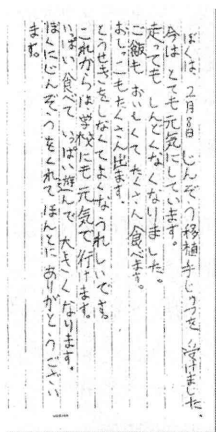 ぼくは、2月8日 じんぞう移植手じゅつを受けました。
今は とても元気にしています。
走っても しんどくなくなりました。
ご飯も おいしくて たくさん食べます。
おしっこもたくさん出ます。
とうせきをしなくてよくなりうれしいです。
これからは学校にも元気で行けます。
いっぱい食べて いっぱい遊んで 大きくなります。
ぼくにじんぞうをくれて ほんとに ありがとうござい
ます。